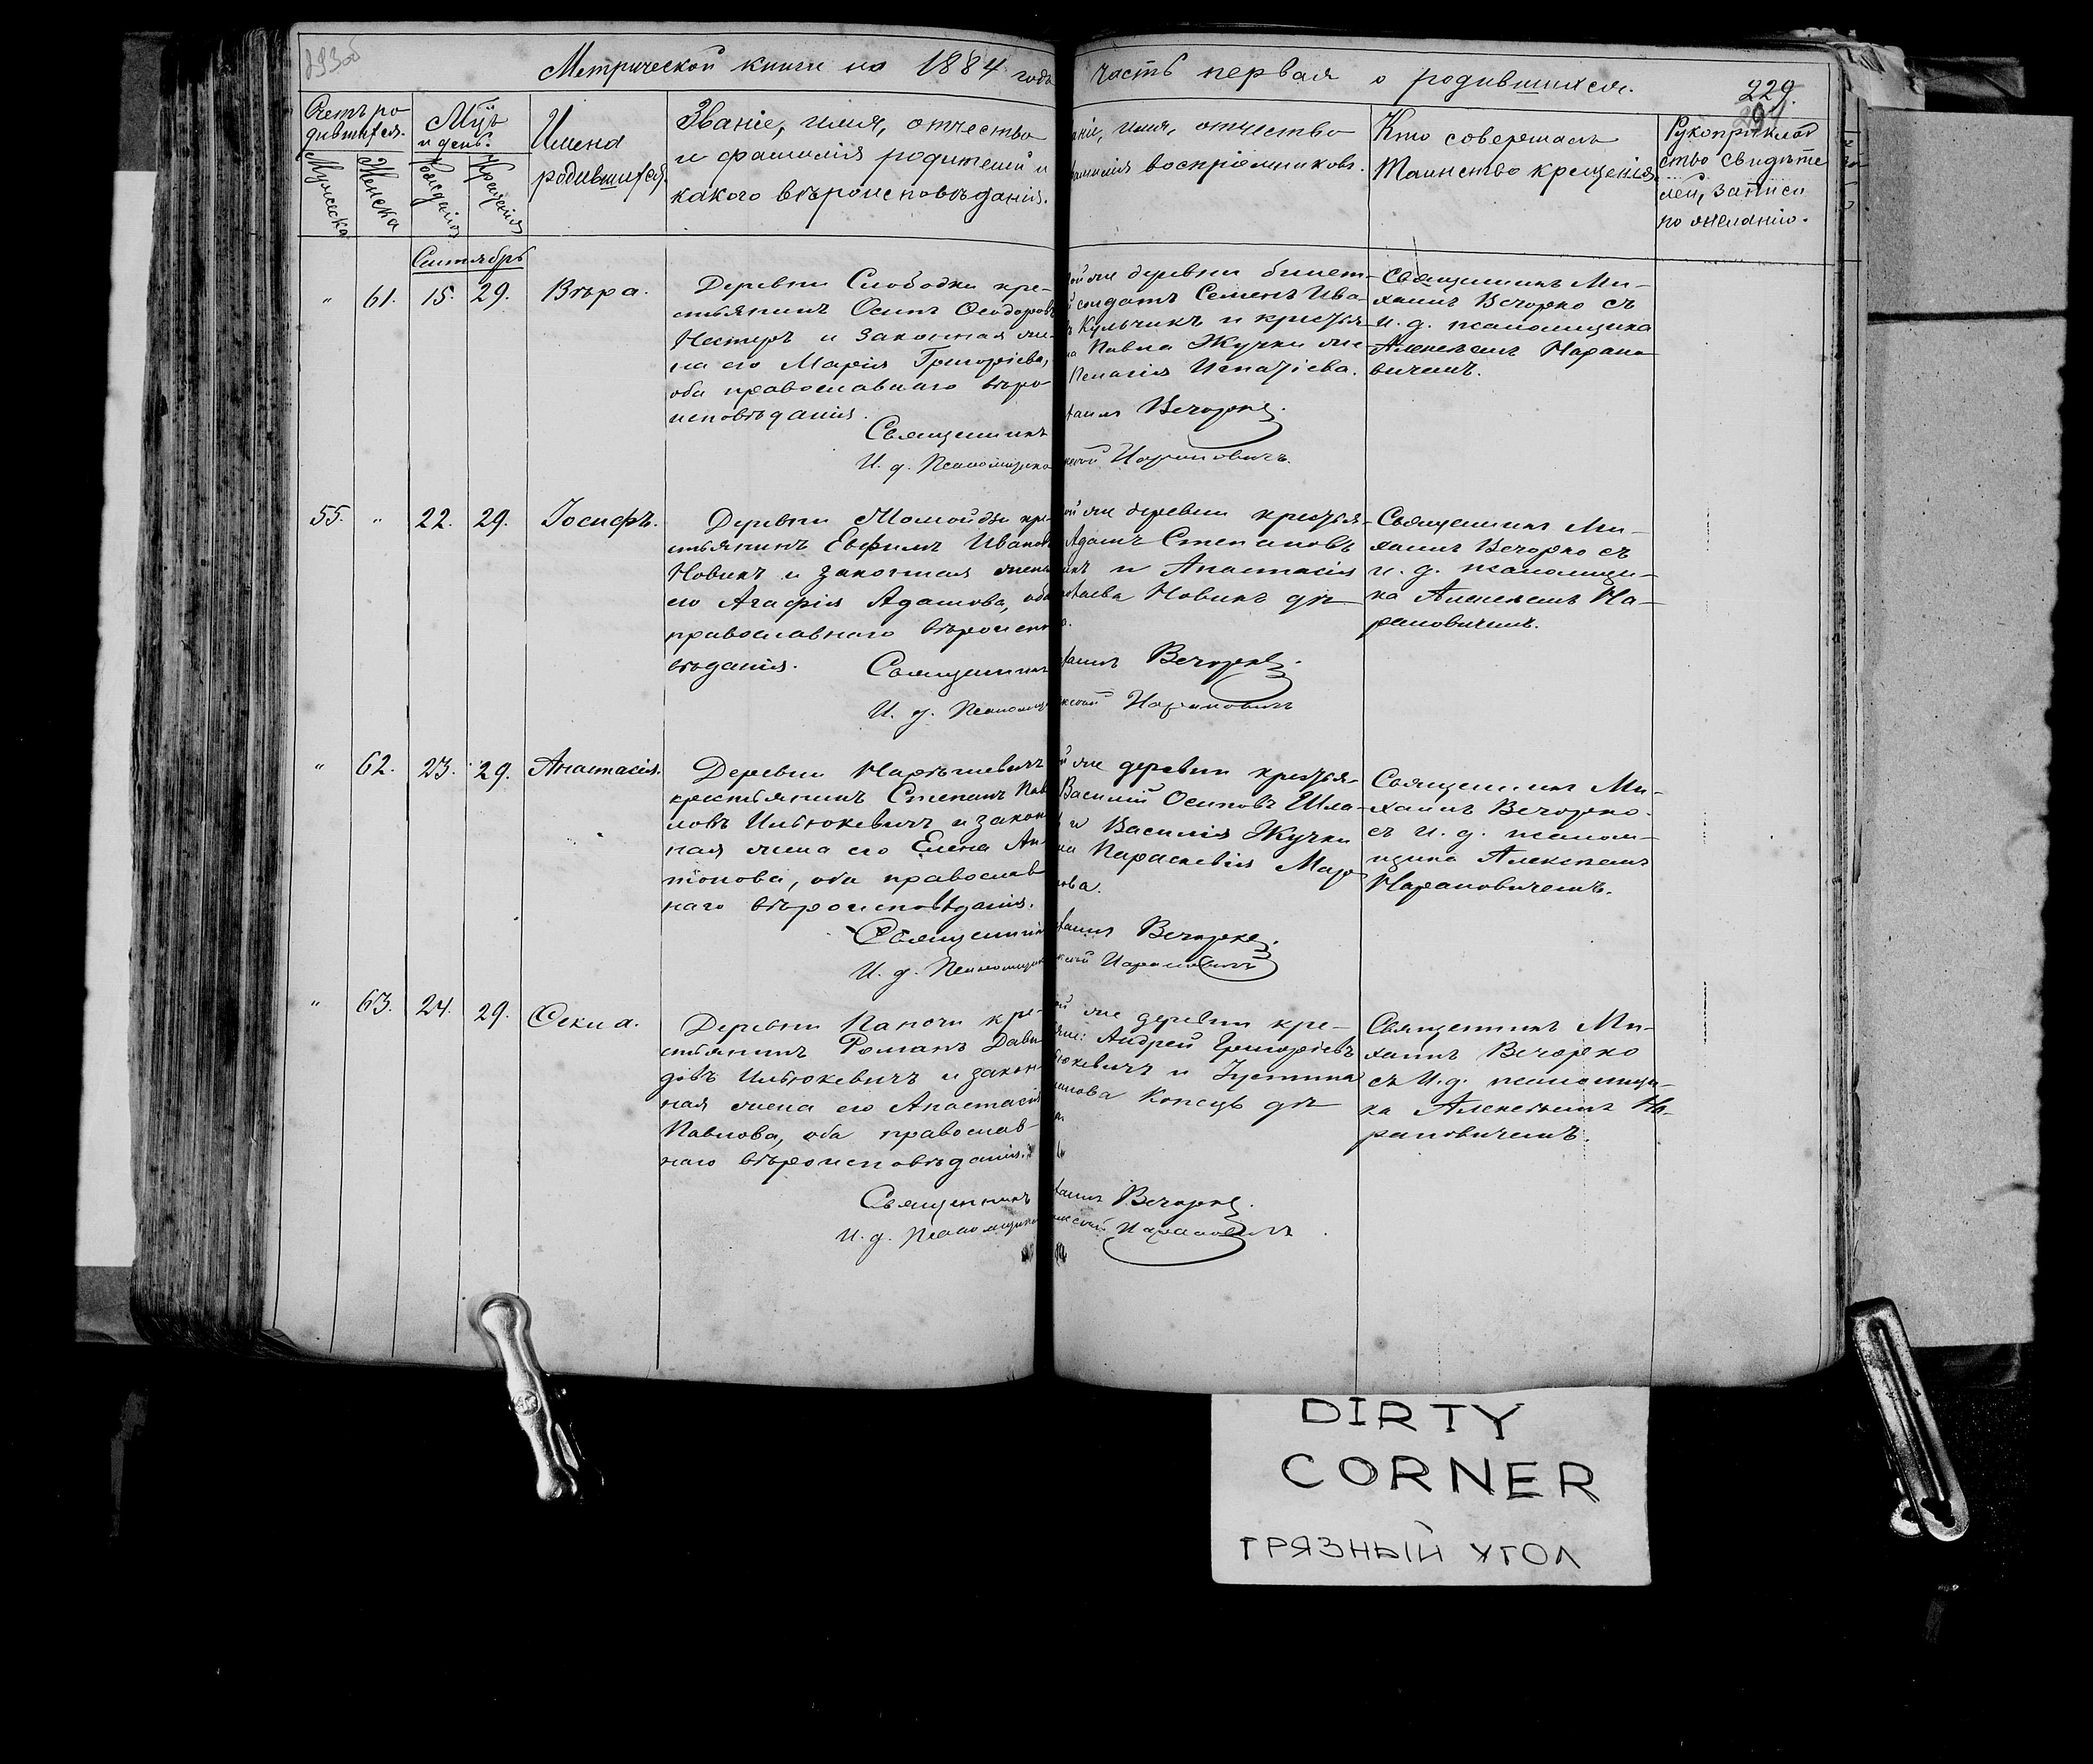 Метрической книги на 1884 годъ часть первая о родившихся.
229.
Счетъ ро-
дившихся.
Мужеска
Женска
Мцъ
и день.
Рожденія
Крещенія
Имена
родившихся.
Званіе, имя, отчество
и фамилія родителей и
какого вѣроисповѣданія.
аніе, имя, отчество
фамилія воспріемниковъ.
Кто совершалъ
Таинство крещенія.
Рукоприклад
ство свидѣте
лей, записи
по желанію.
Сентябрь
" 61. 15. 29. Вѣра.
Деревни Слободки кре-
стьянинъ Осипъ Ѳеодоровъ
Нестеръ и законная же-
на его Марія Григоріева,
оба православнаго вѣро-
исповѣданія.
Священникъ
И. д. Псаломщика
ой же деревни билет-
й солдатъ Семенъ Ива-
въ Кульчикъ и крестья-
на Павла Жучки же-
Пелагія Игнатіева.
хаилъ Вечорко
ксѣй Нарановичъ.
Священникъ Ми-
хаилъ Вечорко съ
и. д. псаломщика
Алексѣемъ Нарано-
вичемъ.
55. " 22. 29. Іосифъ.
Деревни кре-
стьянинъ Евфимъ Ивановъ
Новикъ и законная жена
его Агафія Адамова, оба
православнаго вѣроиспо-
вѣданія.
Священникъ
И. д. Псаломщ
ой же деревни крестья-
Адамъ Степановъ
икъ и Анастасія
Новикъ дѣ-
а.
хаилъ Вечорко
ксѣй Нарановичъ
Священникъ Ми-
хаилъ Вечорко съ
и. д. псаломщи-
ка Алексѣемъ На-
рановичемъ.
" 62. 23. 29. Анастасія.
Деревни
крестьянинъ Степанъ Пав-
ловъ Ильюкевичъ и закон-
ная жена его Елена Ан-
тонова, оба православ-
наго вѣроисповѣданія.
Священникъ
И. д. Псаломщика
й же деревни крестья-
Василій Осиповъ
и Василія Жучки
на Параскевія Мар-
нова.
хаилъ Вечорко
ксѣй Нарановичъ
Священникъ Ми-
хаилъ Вечорко
съ и. д. псалом-
щика Алексѣемъ
Нарановичемъ.
" 63. 24. 29. Ѳекла.
Деревни кре-
стьянинъ Романъ Дави-
довъ Ильюкевичъ и закон-
ная жена его Анастасія
Павлова, оба православ-
наго вѣроисповѣданія.
Священникъ
И. д. Псаломщика
ой же деревни кре-
яне: Андрей Григоріевъ
ьюкевичъ и Іустина
Конецъ дѣ-
а.
хаилъ Вечорко
ксѣй Нарановичъ
Священникъ Ми-
хаилъ Вечорко
съ и. д. псаломщи-
ка Алексѣемъ На-
рановичемъ.
DIRTY
CORNER
ГРЯЗНЫЙ УГОЛ